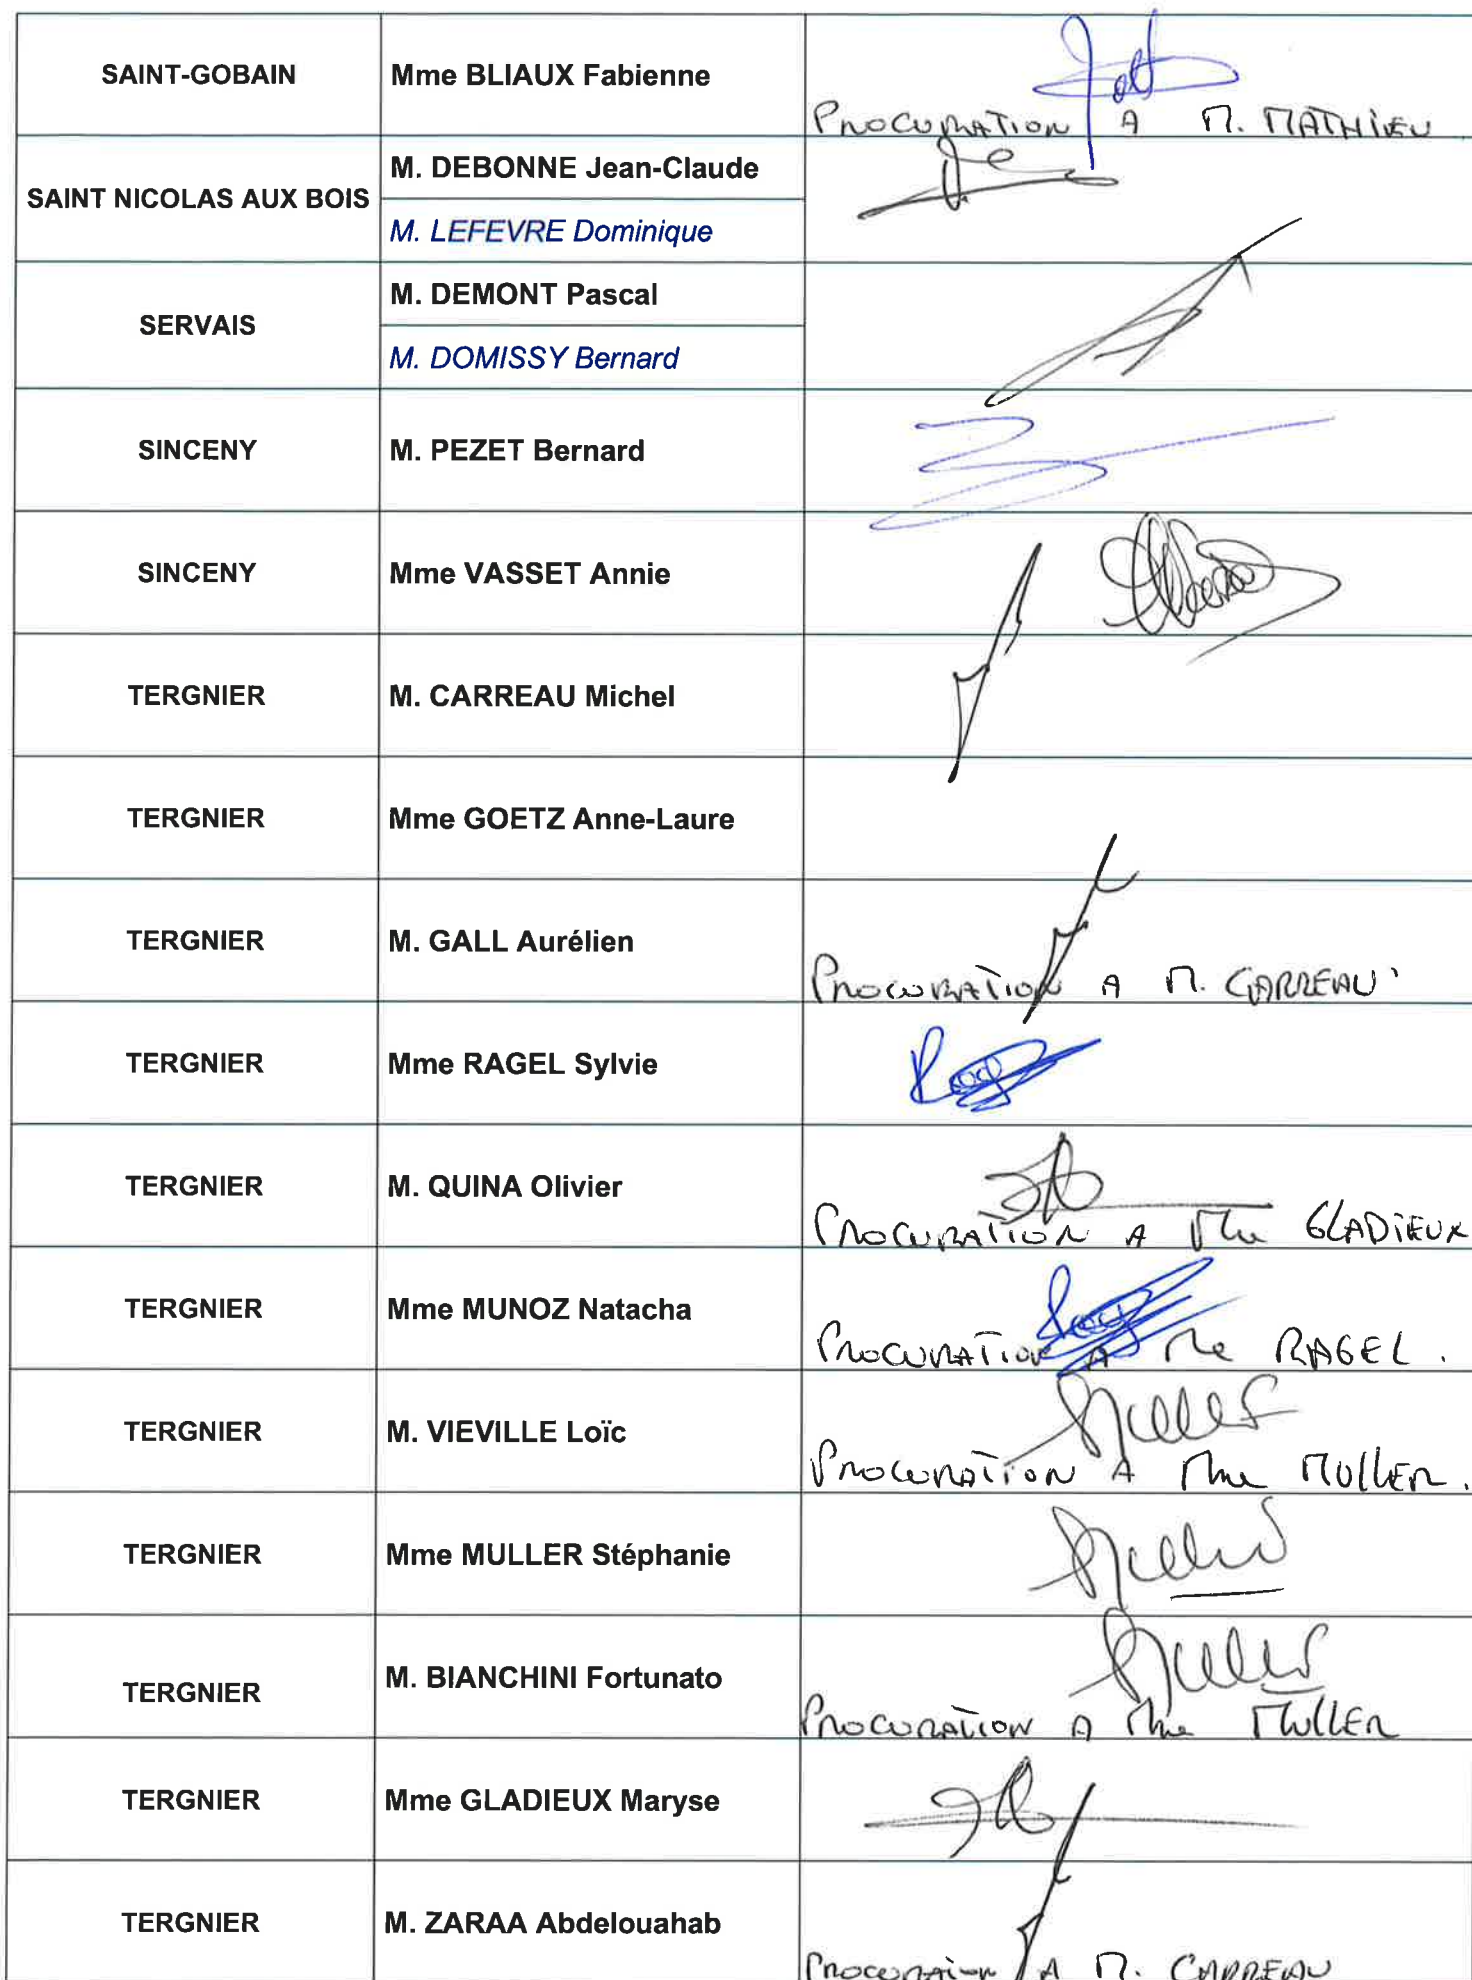 SAINT-GOBAIN
Mme BLIAUX Fabienne
PROCURATION A M. MATHIEU
SAINT NICOLAS AUX BOIS
M. DEBONNE Jean-Claude
M. LEFEVRE Dominique
SERVAIS
M. DEMONT Pascal
M. DOMISSY Bernard
SINCENY
M. PEZET Bernard
SINCENY
Mme VASSET Annie
TERGNIER
M. CARREAU Michel
TERGNIER
Mme GOETZ Anne-Laure
TERGNIER
M. GALL Aurélien
PROCURATION A M. CARREAU
TERGNIER
Mme RAGEL Sylvie
TERGNIER
M. QUINA Olivier
PROCURATION A Mme GLADIEUX
TERGNIER
Mme MUNOZ Natacha
PROCURATION A Me RAGEL.
TERGNIER
M. VIEVILLE Loïc
Muller
PROCURATION A Mme MULLER.
TERGNIER
Mme MULLER Stéphanie
Muller
TERGNIER
M. BIANCHINI Fortunato
Muller
PROCURATION A Mme MULLER
TERGNIER
Mme GLADIEUX Maryse
TERGNIER
M. ZARAA Abdelouahab
PROCURATION A M. CARREAU